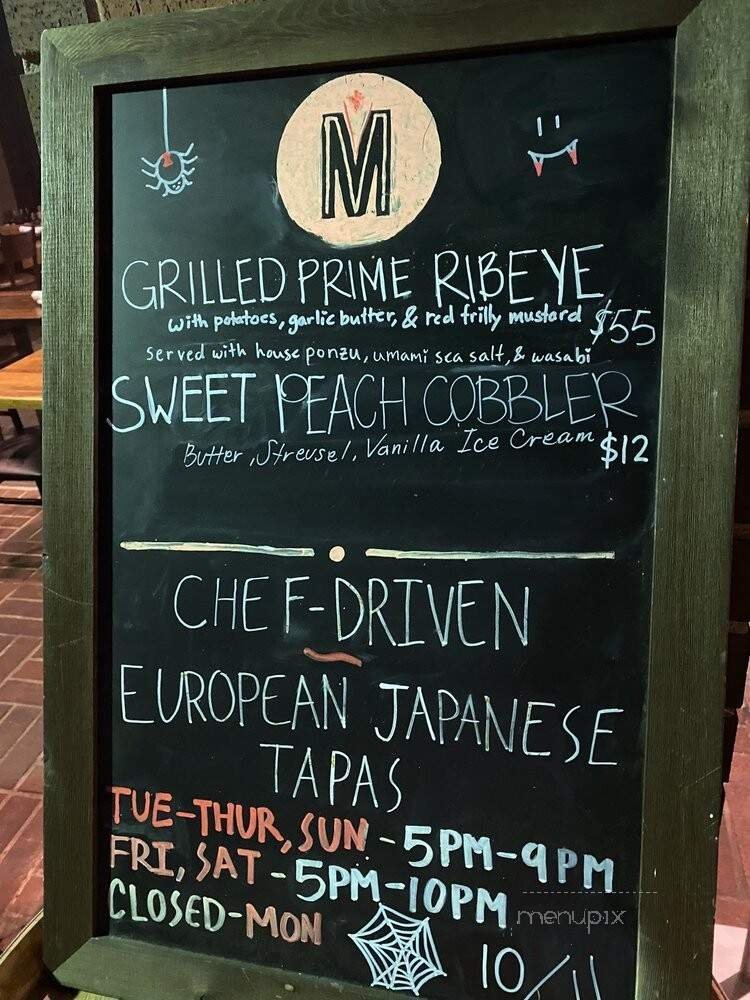 M
GRILLED PRIME RIBEYE
with potatoes, garlic butter, & red frilly mustard $55
served with house ponzu, umami sea salt, & wasabi
SWEET PEACH COBBLER
Butter, Streusel, Vanilla Ice Cream $12
CHEF-DRIVEN
EUROPEAN JAPANESE
TAPAS
TUE-THUR, SUN - 5PM-9PM
FRI, SAT - 5PM-10PM
CLOSED-MON
menupix
10/11